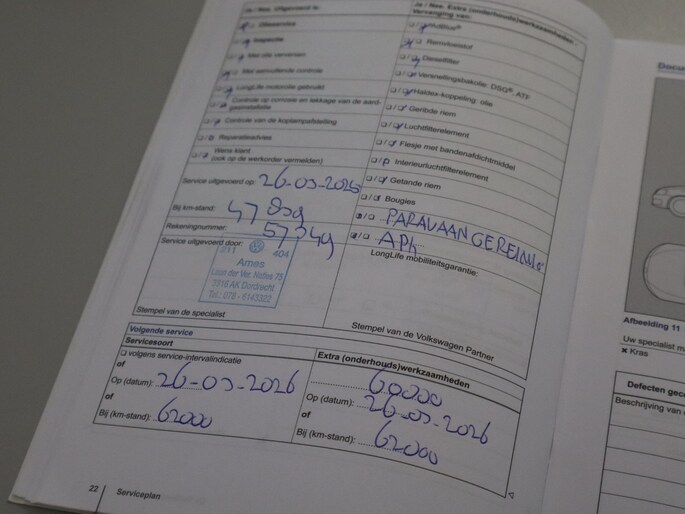 Ja / Nee. Uitgevoerd is:
Olieservice
Inspectie
Met olie verversen
Met aanvullende controle
LongLife motorolie gebruikt
Controle op corrosie en lekkage van de aard-
Controle van de koplampafstelling
Reparatieadvies
Wens klant
(ook op de werkorder vermelden)
Service uitgevoerd op: 26-03-2025
Bij km-stand: 47
Rekeningnummer:
Service uitgevoerd door:
211 404
Ames
Laan der Ver. Naties 75
3316 AK Dordrecht
Tel.: 078 - 6143322
Stempel van de specialist
Ja / Nee. Extra (onderhouds)werkzaamheden
Vervanging van:
Remvloeistof
Dieselfilter
Versnellingsbakolie: DSG®, ATF
Haldex-koppeling: olie
Geribde riem
Luchtfilterelement
Flesje met bandenafdichtmiddel
Interieurluchtfilterelement
Getande riem
Bougies
APK
LongLife mobiliteitsgarantie:
Stempel van de Volkswagen Partner
Volgende service
Servicesoort
volgens service-intervalindicatie
of
Op (datum): 26-03-2026
of
Bij (km-stand): 62000
Extra (onderhouds)werkzaamheden
60000
Op (datum): 26-03-2026
of
Bij (km-stand): 62000
22 Serviceplan
Docu
Afbeelding 11
Uw specialist m
Kras
Defecten gec
Beschrijving van